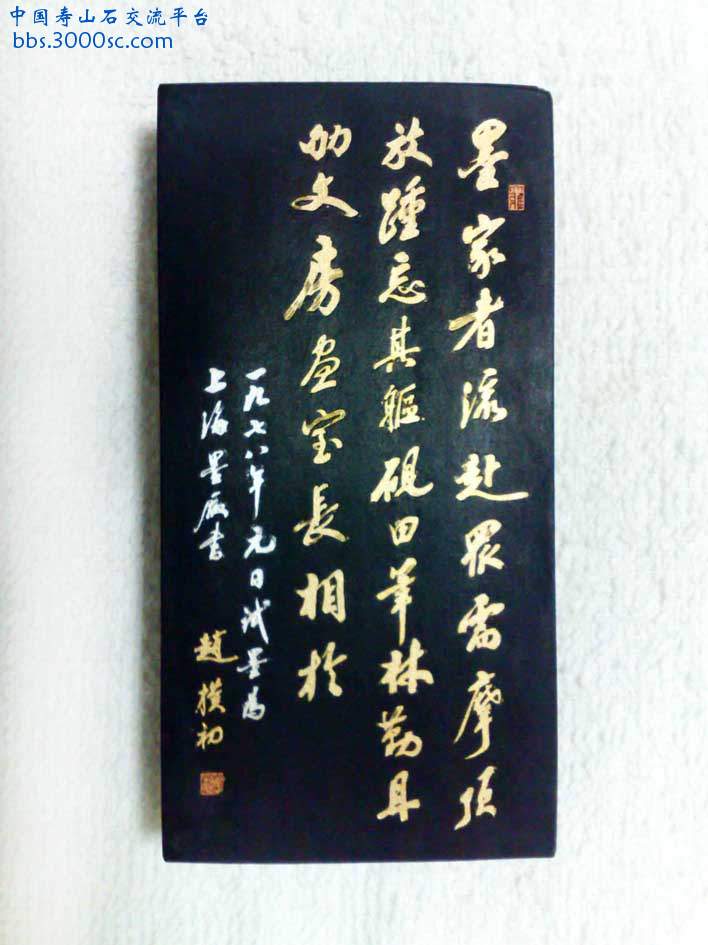 中国寿山石交流平台
bbs.3000sc.com
墨家者流赴眾需摩顶
放踵忘其軀硯田筆林勤耳
助文房画室長相於
一九七八年元日试墨为
上海墨厰书
趙樸初